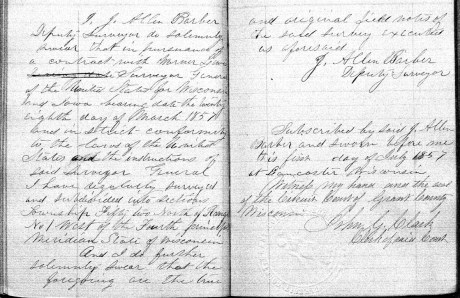 I, J. Allen Barber
Deputy Surveyor do solemnly
swear that in pursuance of
a contract with Warner Lewis
Surveyor General
of the United States for Wisconsin
and Iowa bearing date the twenty
eighth day of March 1857
and in strict conformity
to the laws of the United
States and the instructions of
said Surveyor General
I have regularly surveyed
and subdivided into sections
Township Fifty two North of Range
No 1 West of the Fourth principal
Meridian State of Wisconsin
And I do further
solemnly swear that the
foregoing are the true
and original field notes of
the said survey executed
as aforesaid
J. Allen Barber
Deputy Surveyor
Subscribed by said J. Allen
Barber and sworn before me
this first day of July 1857
at Lancaster Wisconsin
Witness my hand and the seal
of the Circuit Court of Grant County
Wisconsin
John G. Clark
Clerk of said Court